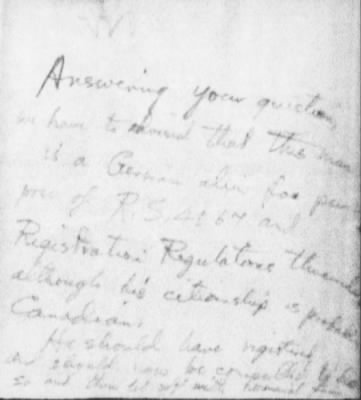 Answering your question,
we have to advise that this man
is a German alien for pur
poses of R.S. 4067 and
Registration Regulations thereunder
although his citizenship is probably
Canadian.
He should have registered
and should now be compelled
so and then let off with nominal